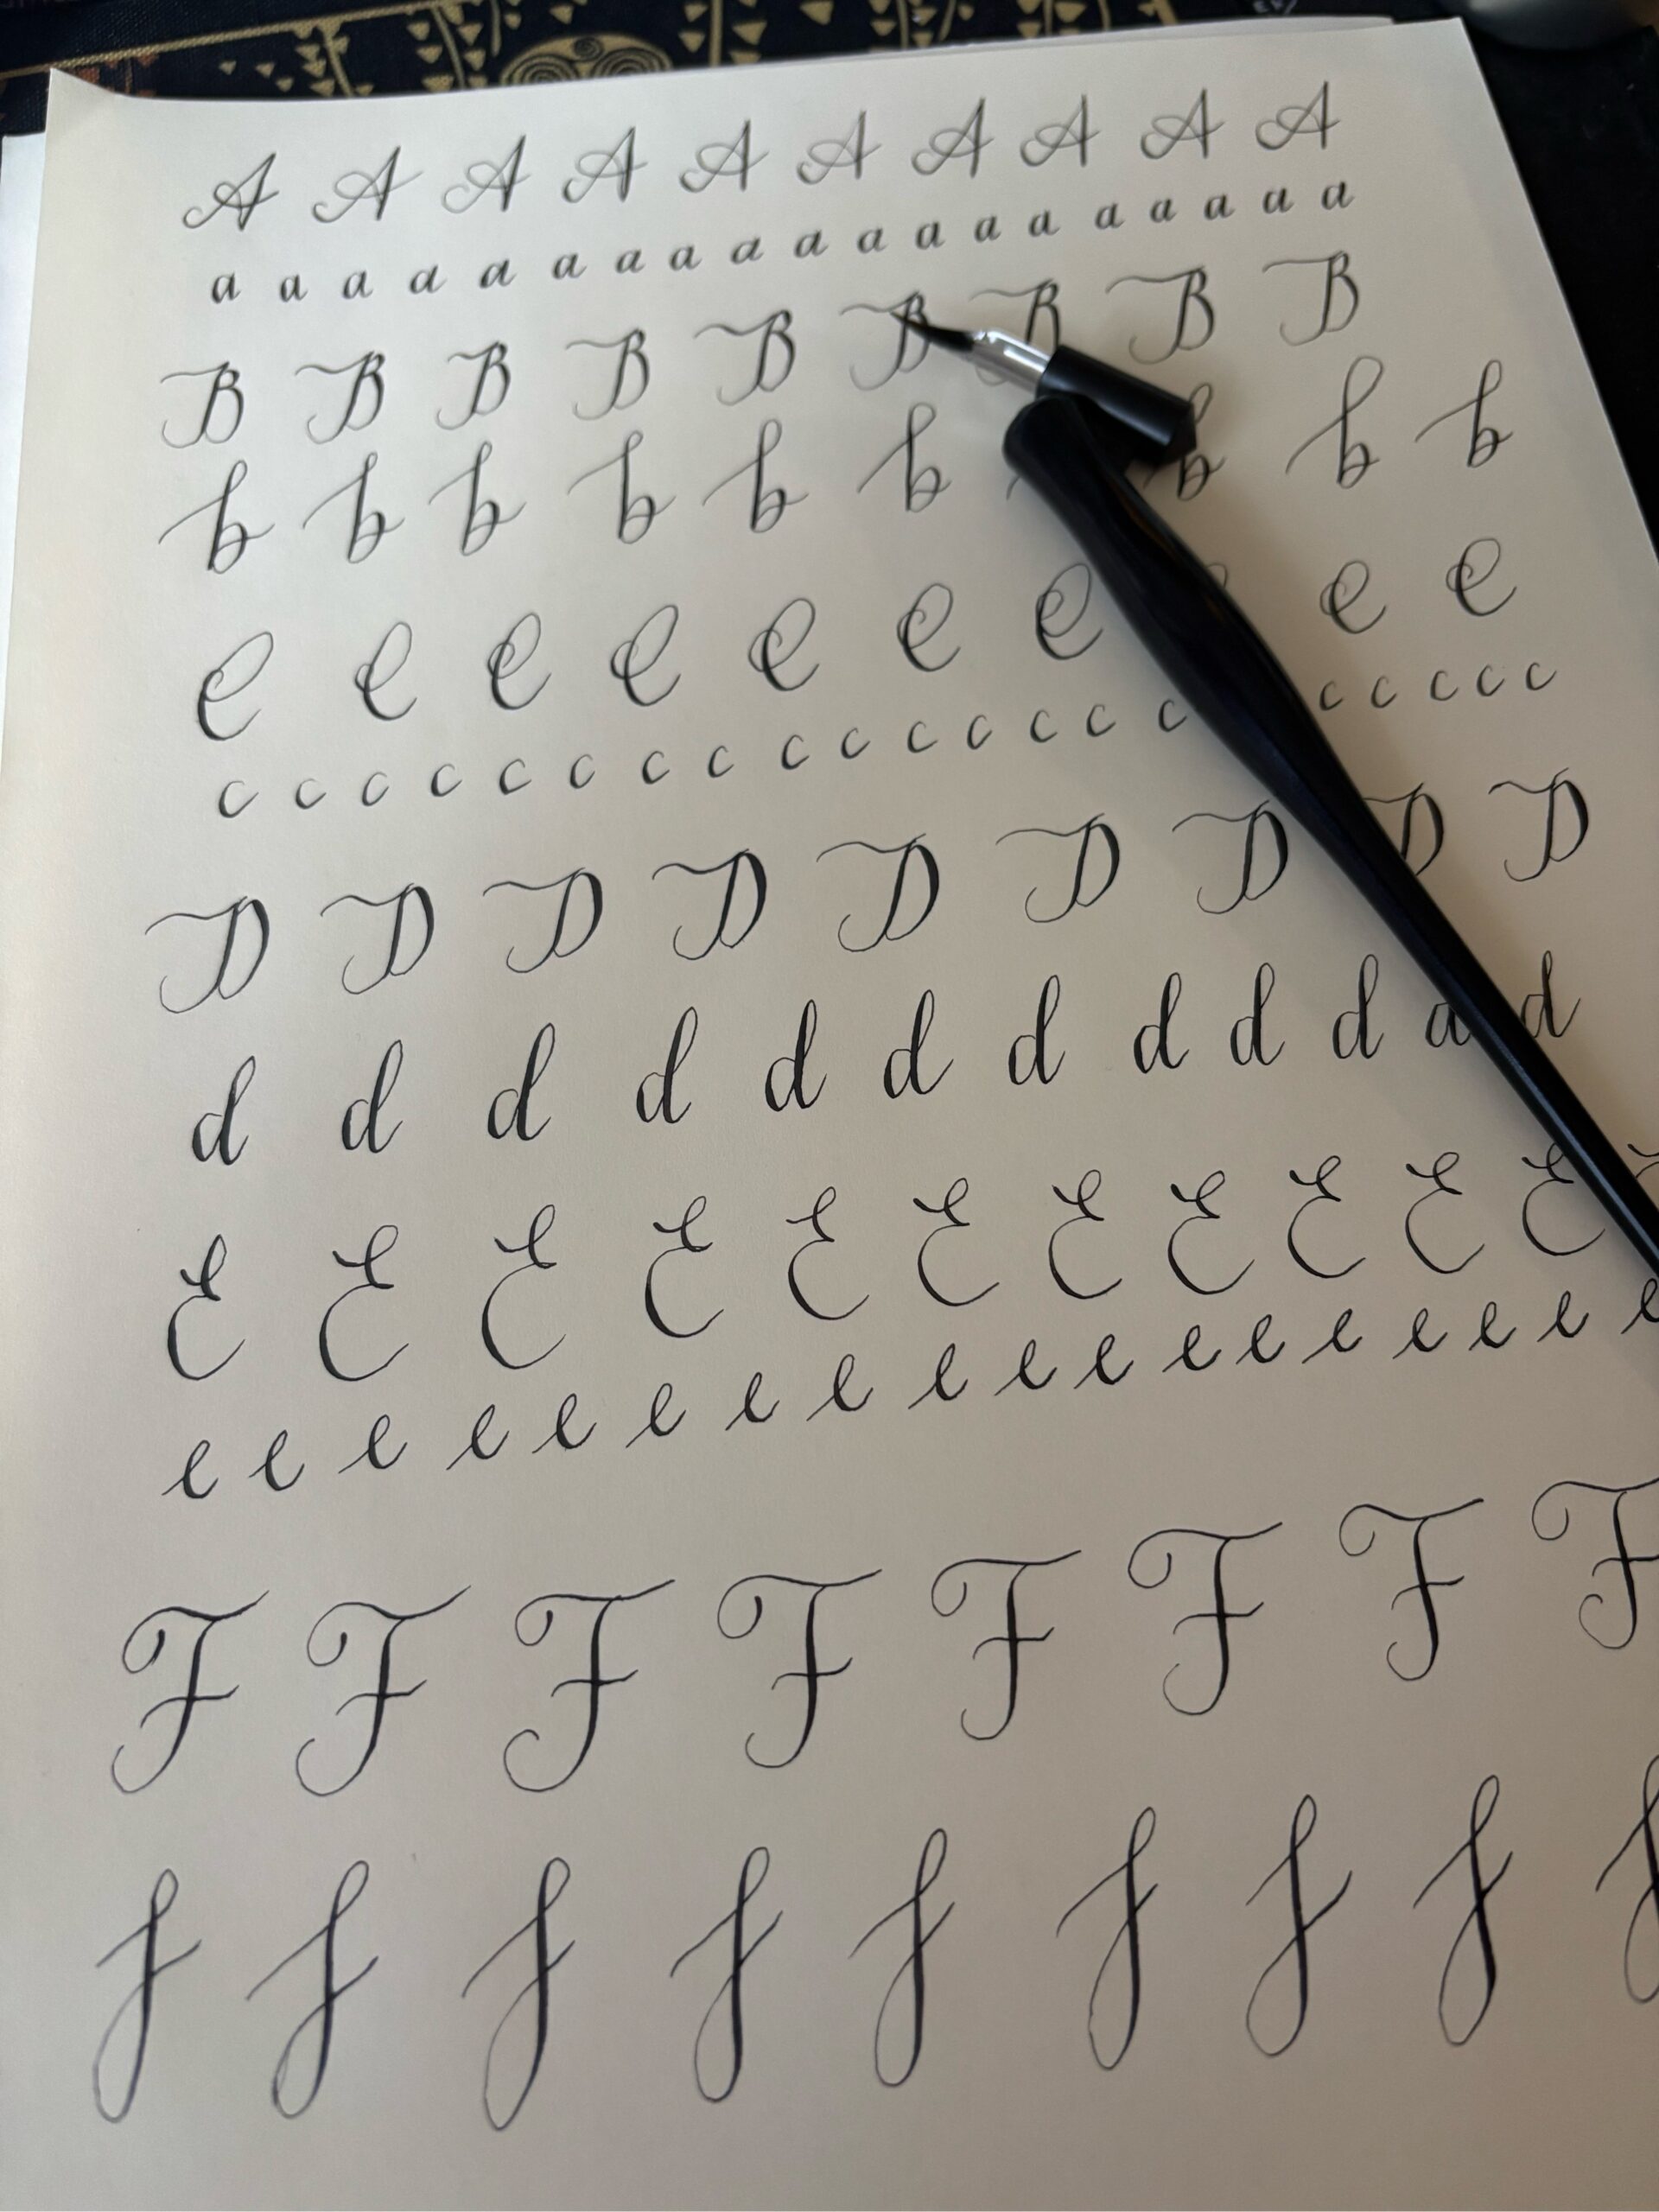 A A A A A A A A A A
a a a a a a a a a a a a a a a a a a a
B B B B B B B B B
b b b b b b b b b
C C C C C C C C C
c c c c c c c c c c c c c c c c c c c c
D D D D D D D D D
d d d d d d d d d d d d
E E E E E E E E E E E
e e e e e e e e e e e e e e e e e e
F F F F F F F F
f f f f f f f f f